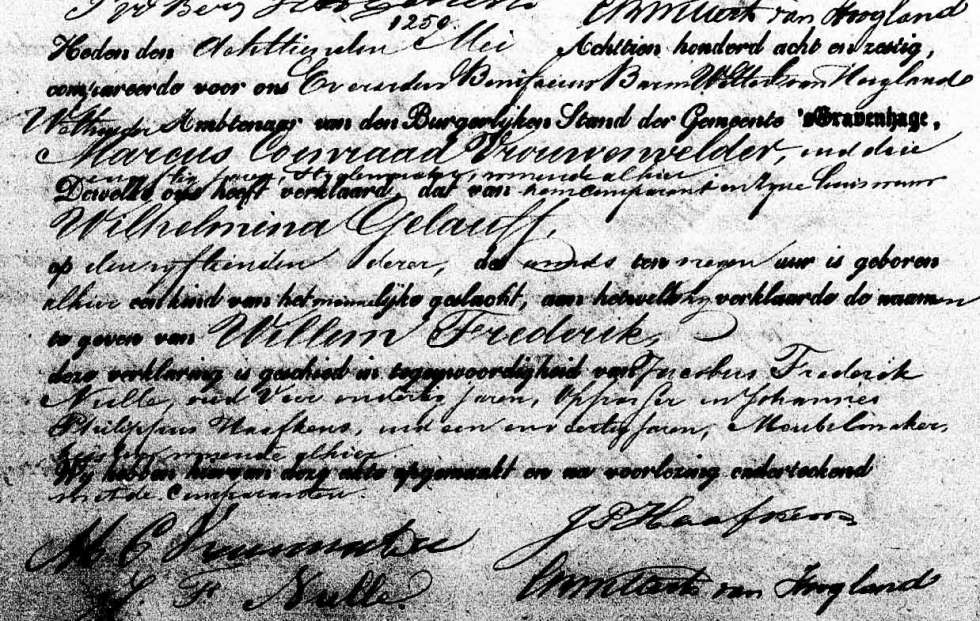 van Hoogland
1250.
Heden den Achttienden Mei Achttien honderd acht en zestig,
compareerde voor ons Everardus Bonifacius Baron Wittert van Hoogland
Wethouder Ambtenaar van den Burgerlijken Stand der Gemeente 'sGravenhage,
Marcus Conraad Vrouwenvelder, oud drie
en jaren, wonende alhier
Dewelke ons heeft verklaard, dat van hem comparant en zijne huisvrouw
Wilhelmina Gelauff,
op den vijftienden dezer, des avonds ten negen uur is geboren
alhier een kind van het mannelijke geslacht, aan hetwelk hij verklaarde de naamen
te geven van Willem Frederik,
deze verklaring is geschied in tegenwoordigheid van Jacobus Frederik
Nulle, oud Vier en dertig jaren, Oppasser en Johannes
Philippus Haafkens, oud een en dertig jaren, Meubelmaker,
wonende alhier.
Wij hebben hiervan deze akte opgemaakt en na voorlezing onderteekend
met de Comparanten.
J P Haafkens
M C
J. F. Nulle.
van Hoogland